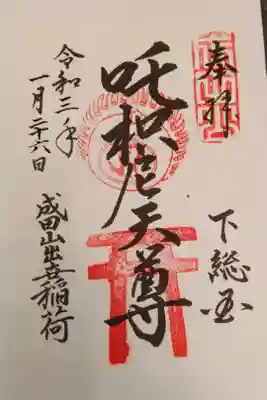 奉拝
下総国
吒枳尼天尊
令和三年
一月二十六日
成田山出世稲荷